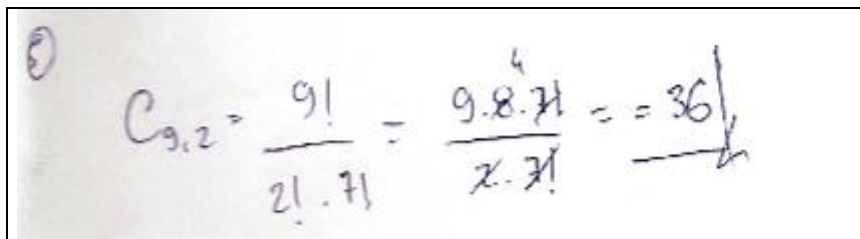 5
C_{9,2} = \frac{9!}{2! . 7!} = \frac{9 . 8 . 7!}{2 . 7!} = = 36
4